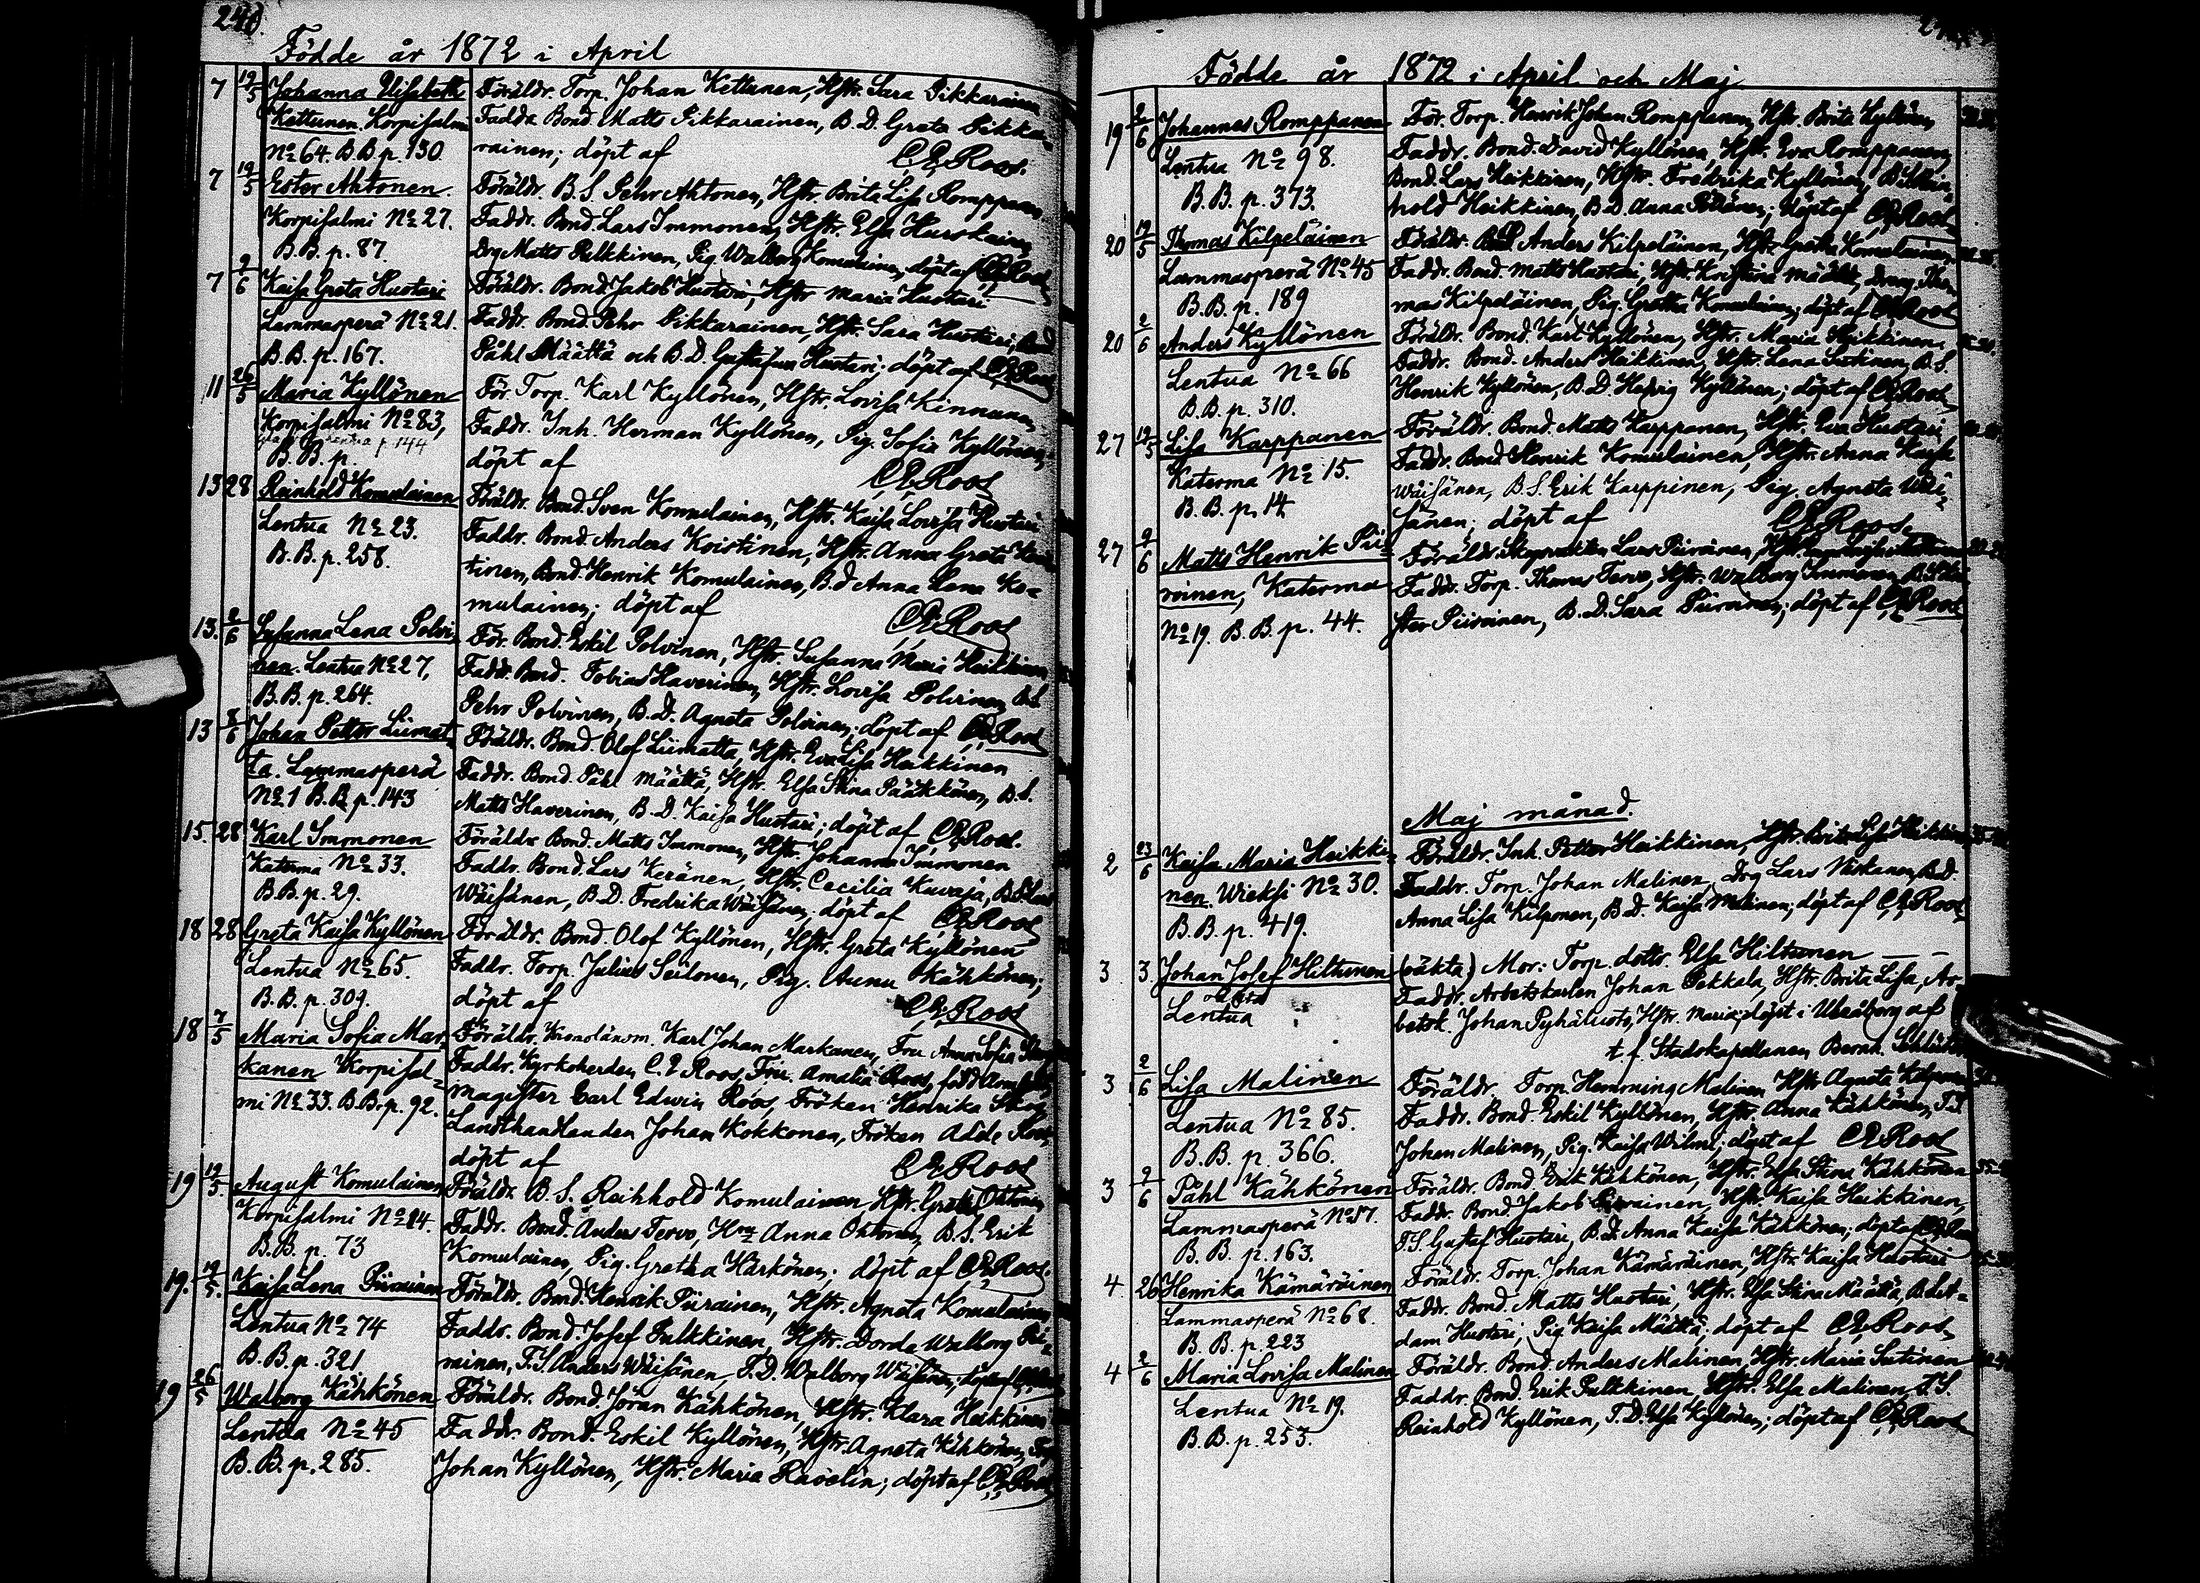 240.
Födde år 1872 i April
7 19/5 Johanna Elisabeth Föräldr. Torp. Johan Kettunen, Hstr. Sara Pikkarainen
Kettunen. Korpisalmi Fadda Bond. Matts Pikkarainen, B. D. Greta Pikka-
No 64. B.B. p. 130. rainen; döpt af C.E. Roos.
7 19/5 Ester Ahtonen. Föräldr. B. S. Pehr Ahtonen, Hstr. Brita Lisa Romppanen
Korpisalmi No 27. Faddr. Bond. Lars Immonen, Hstr. Elsa Hurskainen
B.B. p. 87. Drg Matts Pulkkinen, Pig. Walborg Komulainen, döpt af C.E. Roos
7 2/6 Kaisa Greta Huotari Föräldr. Bond Jakob Huotari, Hstr Maria Huotari
Lammasperä No 21. Faddr. Bond. Pehr Pikkarainen, Hstr. Sara Huotari, Bond
B.B. p. 167. Påhl Määttä och B. D. Gustafva Huotari; döpt af C.E. Roos
11 26/5 Maria Kyllönen För. Torp. Karl Kyllönen, Hstr. Lovisa Kinnunen
Korpisalmi No 83, Faddr. Inh. Herman Kyllönen, Pig. Sofia Kyllönen
p. 144
B.B. p. döpt af C.E. Roos
13 28 Reinhold Komulainen Föräldr. Bond. Sven Komulainen, Hstr. Kaisa Lovisa Huotari
Lentua No 23. Faddr. Bond. Anders Koistinen, Hstr. Anna Greta
B.B. p. 258. tinen, Bond. Henrik Komulainen, B. D Anna Lena Ko-
mulainen; döpt af C.E. Roos
13. 2/6 Susanna Lena Polvi- För. Bond. Eskil Polvinen, Hstr. Susanna Maria Heikkinen
nen. Lentua No 27, Faddr. Bond. Tobias Haverinen, Hstr. Lovisa Polvinen, B.S.
B.B. p. 264. Pehr Polvinen, B. D. Agneta Polvinen; döpt af C.E. Roos
13 8/6 Johan Petter Liimat- Föräldr. Bond. Olof Liimatta, Hstr. Eva Lisa Heikkinen
ta. Lammasperä Faddr. Bond. Påhl Määttä, Hstr. Elsa Stina Pääkkönen, B.S.
No 1 B.B. p. 143 Matts Haverinen, B. D. Kaisa Huotari; döpt af C.E. Roos.
15. 28 Karl Immonen Föräldr. Bond. Matts Immonen, Hstr. Johanna Immonen
Katerma No 33. Faddr. Bond. Lars Keränen, Hstr. Cecilia Kuvaja, B.S. Lars
B.B. p. 29. Wäisänen, B. D. Fredrika Wäisänen; döpt af C.E. Roos
18 28 Greta Kaisa Kyllönen Föräldr. Bond. Olof Kyllönen, Hstr. Greta Kyllönen
Lentua No 65. Faddr. Torp. Julius Seilonen, Pig. Anna Kähkönen;
B.B. p. 309. döpt af C.E. Roos
18 7/5 Maria Sofia Mar- Föräldr. Kronolänsm. Karl Johan Markanen, Fru Anna Sofia
kanen Korpisal- Faddr. Kyrkoherden C. E Roos, Fru. Amalia Roos, född
mi No 33. B.B. p. 92. Magister Carl Edwin Roos, Fröken Henrika
Landthandlanden Johan Kokkonen, Fröken Adele Roos
döpt af C.E. Roos
19 19/5. August Komulainen Föräldr. B. S. Reinhold Komulainen Hstr. Greta Ohtonen
Korpisalmi No 14. Faddr. Bond. Anders Tervo, Hon Anna Ohtonen, B. S. Erik
B.B. p. 73 Komulainen, Pig. Gretha Härkönen; döpt af C.E. Roos.
19. 19/5. Kaisa Lena Piirainen Föräldr. Bond. Henrik Piirainen, Hstr. Agneta Komulainen
Lentua No 74 Faddr. Bond. Josef Pulkkinen, Hstr. Dorde Walborg Pii-
B.B. p. 321 rainen, T. S. Anders Wäisänen, T. D. Walborg Wäisänen, döpt af C.E. Roos
19 26/5 Walborg Kähkönen Föräldr. Bond. Jöran Kähkönen, Hstr. Klara Heikkinen
Lentua No 45 Faddr. Bond. Eskil Kyllönen, Hstr. Agneta Kähkönen, Torp
B.B. p. 285. Johan Kyllönen, Hstr. Maria Ravelin; döpt af C.E. Roos
Födde år 1872 i April och Maj
19 2/6 Johannes Romppanen För. Torp. Henrik Johan Romppanen, Hstr. Brita Kyllönen
Lentua No 98. Faddr. Bond. David Kyllönen, Hstr. Eva Romppanen,
B.B. p. 373. Bond. Lars Heikkinen, Hstr. Fredrika Kyllönen, B.S. Rein-
hold Heikkinen, B. D. Anna; döpt af C.E. Roos
20 19/5 Thomas Kilpeläinen Föräldr. Anders Kilpeläinen, Hstr. Gretha Komulainen
Lammasperä No 45 Faddr. Bond. Matts Huotari, Hstr. Kristina Määttä, Dreng Tho-
B.B. p. 189 mas Kilpeläinen, Pig. Gretha Komulainen; döpt af C.E. Roos
20 2/6 Anders Kyllönen Föräldr. Bond. Karl Kyllönen, Hstr. Maria Heikkinen.
Lentua No 66 Faddr. Bond. Anders Heikkinen, Hstr. Lena, B. S.
B.B. p. 310. Henrik Kyllönen, B. D. Hedvig Kyllönen; döpt af C.E. Roos
27 19/5 Lisa Karppanen Föräldr. Bond. Matts Karppanen, Hstr. Eva Huotari
Katerma No 15. Faddr. Bond Henrik Komulainen, Hstr. Anna Kaisa
B.B. p. 14 Wäisänen, B. S. Erik Karppinen, Pig. Agneta Wäi-
sänen; döpt af C.E. Roos.
27 2/6 Matts Henrik Pii- Föräldr. Lars Piirainen, Hstr.
roinen, Katerma Faddr. Torp. Thomas Tervo, Hstr. Walborg Immonen,
No 19. B.B. p. 44. Piirainen, B. D. Sara Piirainen; döpt af C.E. Roos
Maj månad.
2 23/6 Kaisa Maria Heikki- Föräldr. Inh. Petter Heikkinen, Hstr. Brita Lisa Heikkinen
nen. Wieksi No 30. Faddr. Torp. Johan Malinen, Drg Lars Niskanen, B.D.
B.B. p. 419. Anna Lisa Kilponen, B. D. Kaisa Malinen; döpt af C.E. Roos
3 3 Johan Josef Hiltunen (oäkta) Mor: Torp. dottr. Elsa Hiltunen
Lentua Faddr. Arbetskarlen Johan Pekkala, Hstr. Brita Lisa, Ar-
betsk. Johan Pyhäluoto, Hstr. Maria; döpt i Uleåborg af
t. f. Stadskapellanen Bernh.
3 2/6 Lisa Malinen Föräldr. Torp. Hemming Malinen Hstr Agneta
Lentua No 85. Faddr. Bond. Eskil Kyllönen, Hstr. Anna Kähkönen, T.S
B.B. p. 366. Johan Malinen, Pig. Kaisa; döpt af C.E. Roos
3 2/6 Påhl Kähkönen Föräldr. Bond. Erik Kähkönen, Hstr. Elsa Stina Kähkönen
Lammasperä No 17. Faddr. Bond. Jakob, Hstr Kaisa Heikkinen,
B.B. p. 163. T.S. Gustaf Huotari, B. D. Anna Kaisa Kähkönen; döpt af C.E. Roos
4 26 Henrika Kämäräinen Föräldr. Torp. Johan Kämäräinen, Hstr. Kaisa Huotari
Lammasperä No 68. Faddr. Bond. Matts Huotari, Hstr. Elsa Stina Määttä, B.S. A-
B.B. p. 223 dam Huotari, Pig. Kaisa Määttä; döpt af C.E. Roos
4 2/6 Maria Lovisa Malinen Föräldr. Bond. Anders Malinen, Hstr. Maria Sutinen
Lentua No 19. Faddr. Bond. Erik Pulkkinen, Hstr. Elsa Malinen, T.S.
B.B. p. 253. Reinhold Kyllönen, T. D. Elsa Kyllönen; döpt af C.E. Roos